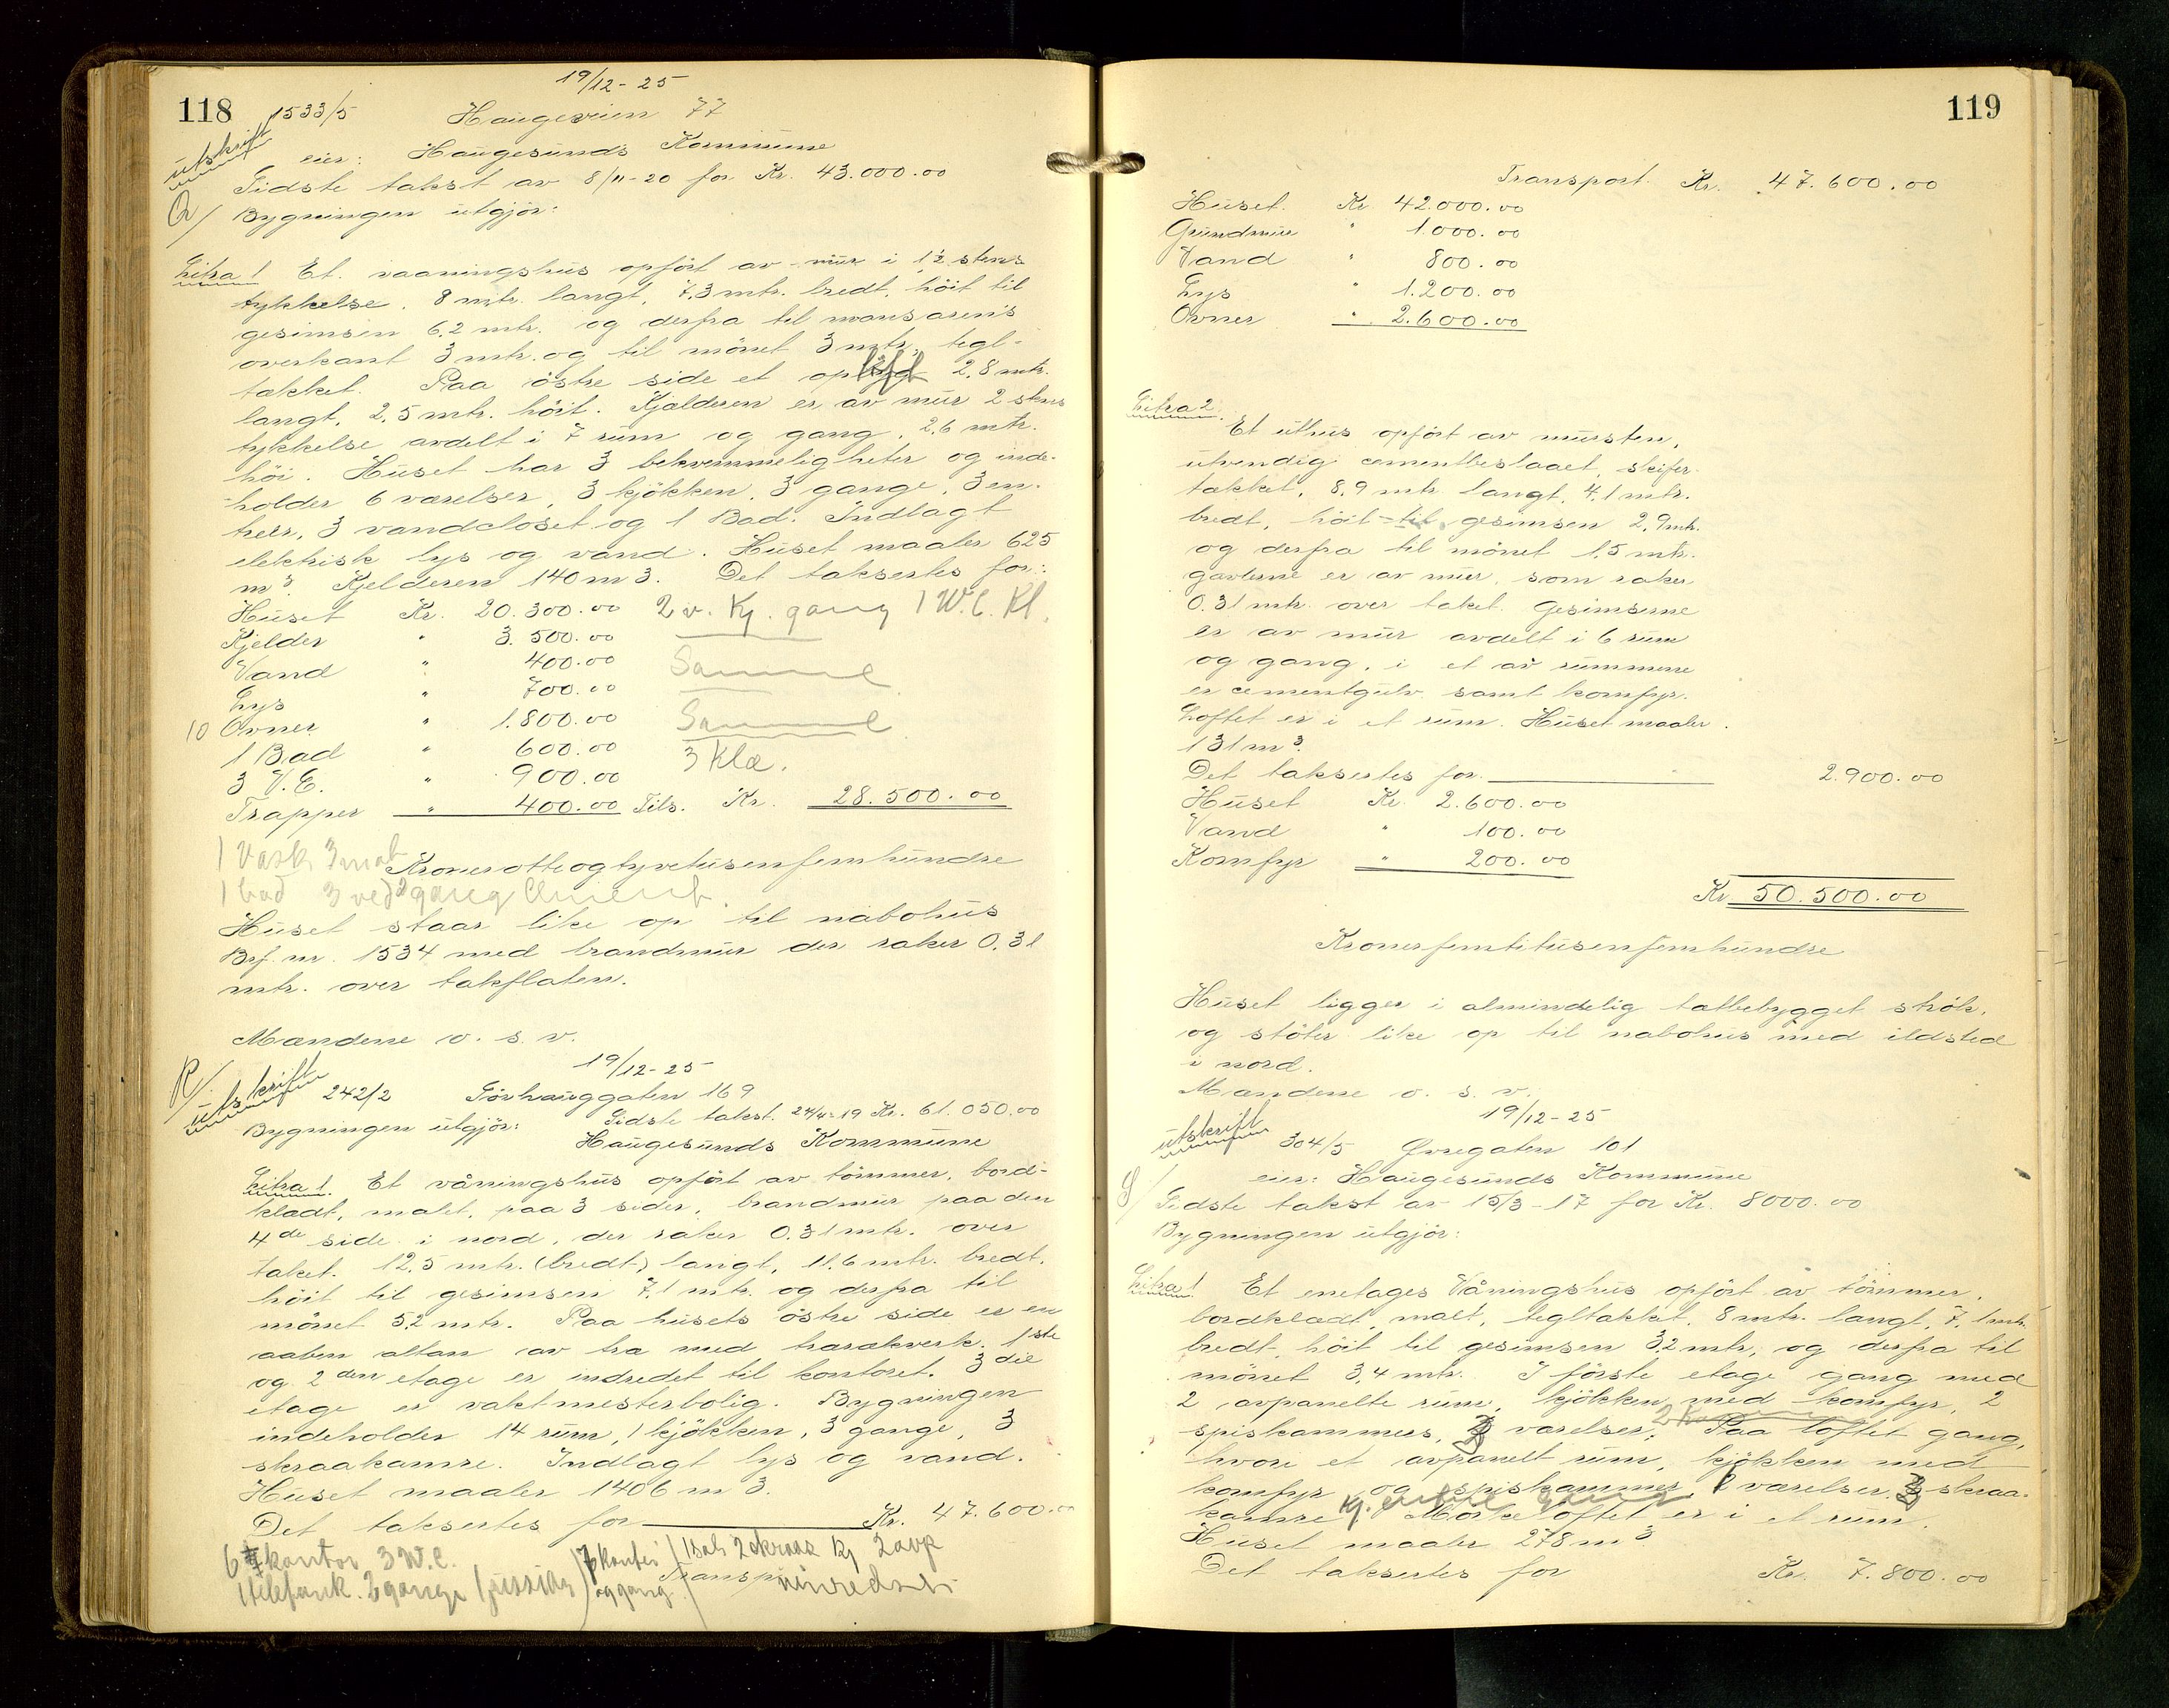 118
19/12-25
1533/5 Haugeveien 77
utskrift
eier: Haugesunds Kommune
Sidste takst av 8/11-20 for Kr. 43.000.00
Q/ Bygningen utgjör:
Litra 1 Et vaaningshus opfört av mur i 1½ stens
tykkelse. 8 mtr. langt, 7,3 mtr. bredt, höit til
gesimsen 6,2 mtr. og derfra til mansarens
overkant 3 mtr. og til mönet 3 mtr, tegl-
tækket. Paa östre side et opløft 2,8 mtr.
langt, 2,5 mtr. höit. Kjælderen er av mur 2 stens
tykkelse avdelt i 7 rum og gang, 2,6 mtr.
höi. Huset har 3 bekvemmeligheter og inde-
holder 6 værelser, 3 kjökken, 3 gange, 3 en-
treer, 3 vandcloset og 1 Bad. Indlagt
elektrisk lys og vand. Huset maaler 625
m³. Kjelderen 140 m3. Det takseres for:
Huset Kr. 20.300.00 2 v. Kj. gang 1 W.C. Kl.
Kjelder " 3.500.00
Vand " 400.00 Samme
Lys " 700.00
10 Ovner " 1.800.00 Samme
1 Bad " 600.00 3 Kla.
3 V.C. " 900.00
Trapper " 400.00 Tils. Kr. 28.500.00
1 Vask 3 mat
Kronerotteogtyvetusenfemhundre
1 bad 3 ved 2 gang
Huset staar like op til nabohus
Brf. nr. 1534 med brandmur der raker 0,31
mtr. over takflaten.
Mændene o. s. v.
19/12-25
R/ utskrift 242/2 Sörhauggaten 169
Sidste takst. 24/11-19 Kr. 61.050.00
Bygningen utgjör: Haugesunds Kommune
Litra 1. Et våningshus opfört av tömmer, bord-
klædt, malet, paa 3 sider, brandmur paa den
4de side i nord, der raker 0,31 mtr. over
taket. 12,5 mtr. (bredt) langt, 11,6 mtr. bredt,
höit til gesimsen 7,1 mtr. og derfra til
mönet 5,2 mtr. Paa husets östre side er en
aaben altan av træ med trærækverk. 1ste
og 2den etage er indredet til kontoret. 3die
etage er vaktmesterbolig. Bygningen
indeholder 14 rum, 1 kjökken, 3 gange, 3
skraakamre. Indlagt lys og vand.
Huset maaler 1406 m3.
Det takseres for Kr. 47.600.00
6 kontor 3 W.C. 7 kontor 1 bals 2 skraak Kj 2 avp
1 telefonk. 2 gange og gang Transp.
119
Transport. Kr. 47.600.00
Huset. Kr 42.000.00
Grundmur " 1.000.00
Vand " 800.00
Lys " 1.200.00
Ovner " 2.600.00
Litra 2.
Et uthus opfört av mursten,
utvendig cementbeslaaet, skifer-
tækket, 8,9 mtr langt, 4,1 mtr.
bredt, höit til gesimsen 2,9 mtr.
og derfra til mönet 1,5 mtr.
gavlerne er av mur, som raker
0,31 mtr. over taket. Gesimserne
er av mur avdelt i 6 rum
og gang, i et av rummene
er cementgulv samt komfyr.
Loftet er i et rum. Huset maaler
131 m³.
Det takseres for. 2.900.00
Huset Kr. 2.600.00
Vand " 100.00
Komfyr " 200.00
Kr. 50.500.00
Kronerfemtitusenfemhundre
Huset ligger i almindelig tætbebygget strök,
og stöter like op til nabohus med ildsted
i nord.
Mændene o. s. v.
19/12-25
utskrift 304/5 Øvregaten 101
eier: Haugesunds Kommune
S/ Sidste takst av 15/3-17 for Kr. 8000.00
Bygningen utgjör:
Litra 1 Et enetages Våningshus opfört av tömmer,
bordklædt, malt, tegltækket, 8 mtr. langt, 7,1 mtr.
bredt, höit til gesimsen 3,2 mtr, og derfra til
mönet 3,4 mtr. I förste etage gang med
2 avpanelte rum, kjökken med komfyr, 2
spiskammers, 3 værelser. Paa loftet gang,
hvore et avpanelt rum, kjökken med
komfyr og spiskammer, 2 værelser, 3 skraa-
kamre Kj. entre gang Mörkeloftet er i et rum.
Huset maaler 278 m3
Det takseres for Kr. 7.800.00